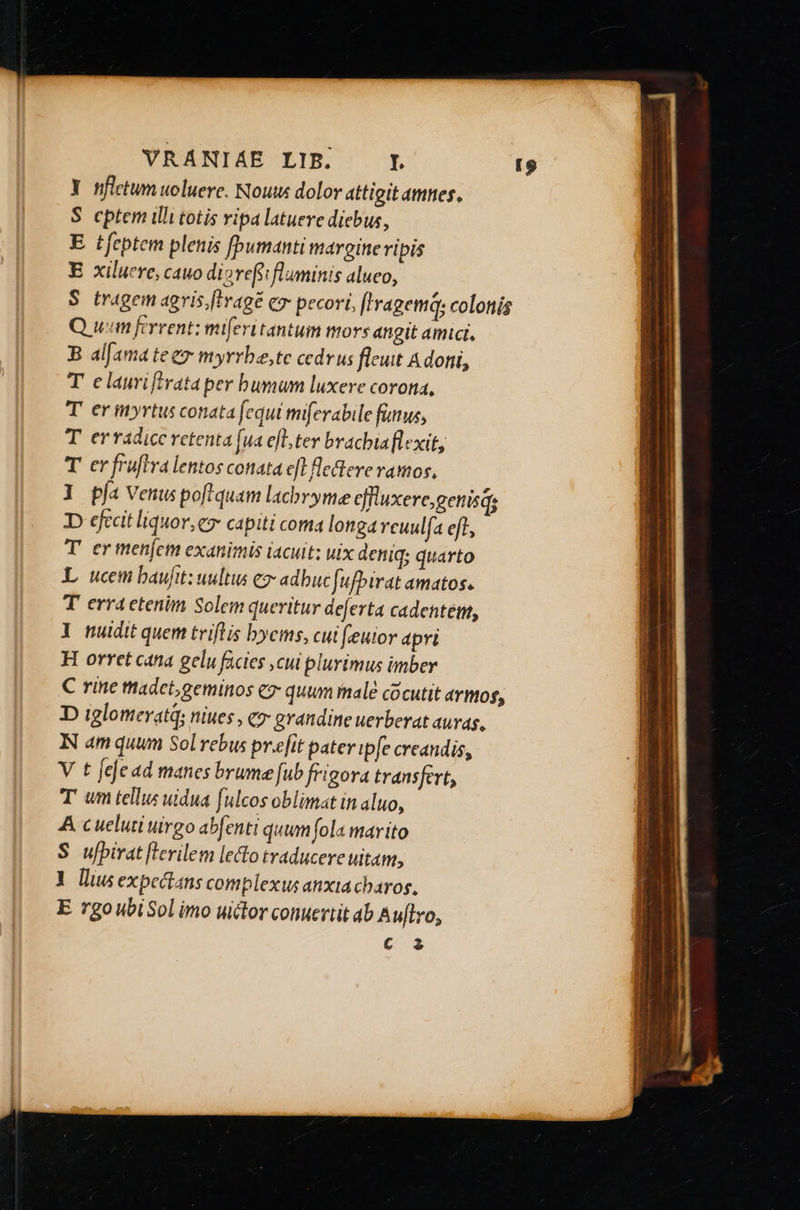 VRANIAE LIB. I. 19
I nfletum uoluere. Nouus dolor attigit amnes,
S eptem illi totis ripa latuere diebus,
E t ſeptem plenis ſpumanti margine ripis
E xiluere, cauo digreſſi fluminis alueo,
S tragem agris, ſtragē & pecori, ſtragemq́; colonis
Q uum ferrent: miſeri tantum mors angit amici.
B alſama te & myrrhæ, te cedrus fleuit Adoni,
T e lauri ſtrata per humum luxere corona,
T er myrtus conata ſequi miſerabile funus,
T er radice retenta ſua eſt, ter brachia flexit,
T er fruſtra lentos conata eſt flectere ramos.
I pſa Venus poſtquam lachrymæ effluxere, geniśq;
D efecit liquor, & capiti coma longa reuulſa eſt,
T er menſem exanimis iacuit: uix deniq; quarto
L ucem hauſit: uultus & adhuc ſuſpirat amatos.
T erra etenim Solem queritur deſerta cadentem,
I nuidit quem triſtis hyems, cui ſæuior apri
H orret cana gelu facies, cui plurimus imber
C rine madet, geminos & quum malè cōcutit armos,
D iglomeratq́; niues, & grandine uerberat auras.
N am quum Sol rebus præſit pater ipſe creandis,
V t ſeſe ad manes brumæ ſub frigora transfert,
T um tellus uidua ſulcos oblimat in aluo,
A c ueluti uirgo abſenti quum ſola marito
S uſpirat ſterilem lecto traducere uitam,
I llius expectans complexus anxia charos.
E rgo ubi Sol imo uictor conuertit ab Auſtro,
C 2